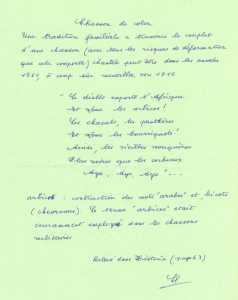 Chanson de colon
Une tradition familiale a transmis le couplet
d'une chanson (avec tous les risques de déformation
que cela comporte) chantée peut être dans les années
à coup sûr recueillie vers
- Le diable emporte l'Afrique
Et tous les arbicos !
Les chacals, les panthères
Et tous les bourriquots !
Ainsi, les vieilles mauquères
Plus noires que les corbeaux
Aya, Aya, Aya ! --
arbicot : contraction des mots "arabe" et bicots
Le terme "arbicos" était
couramment employé dans les chansons
militaires
Relevé dans Historia